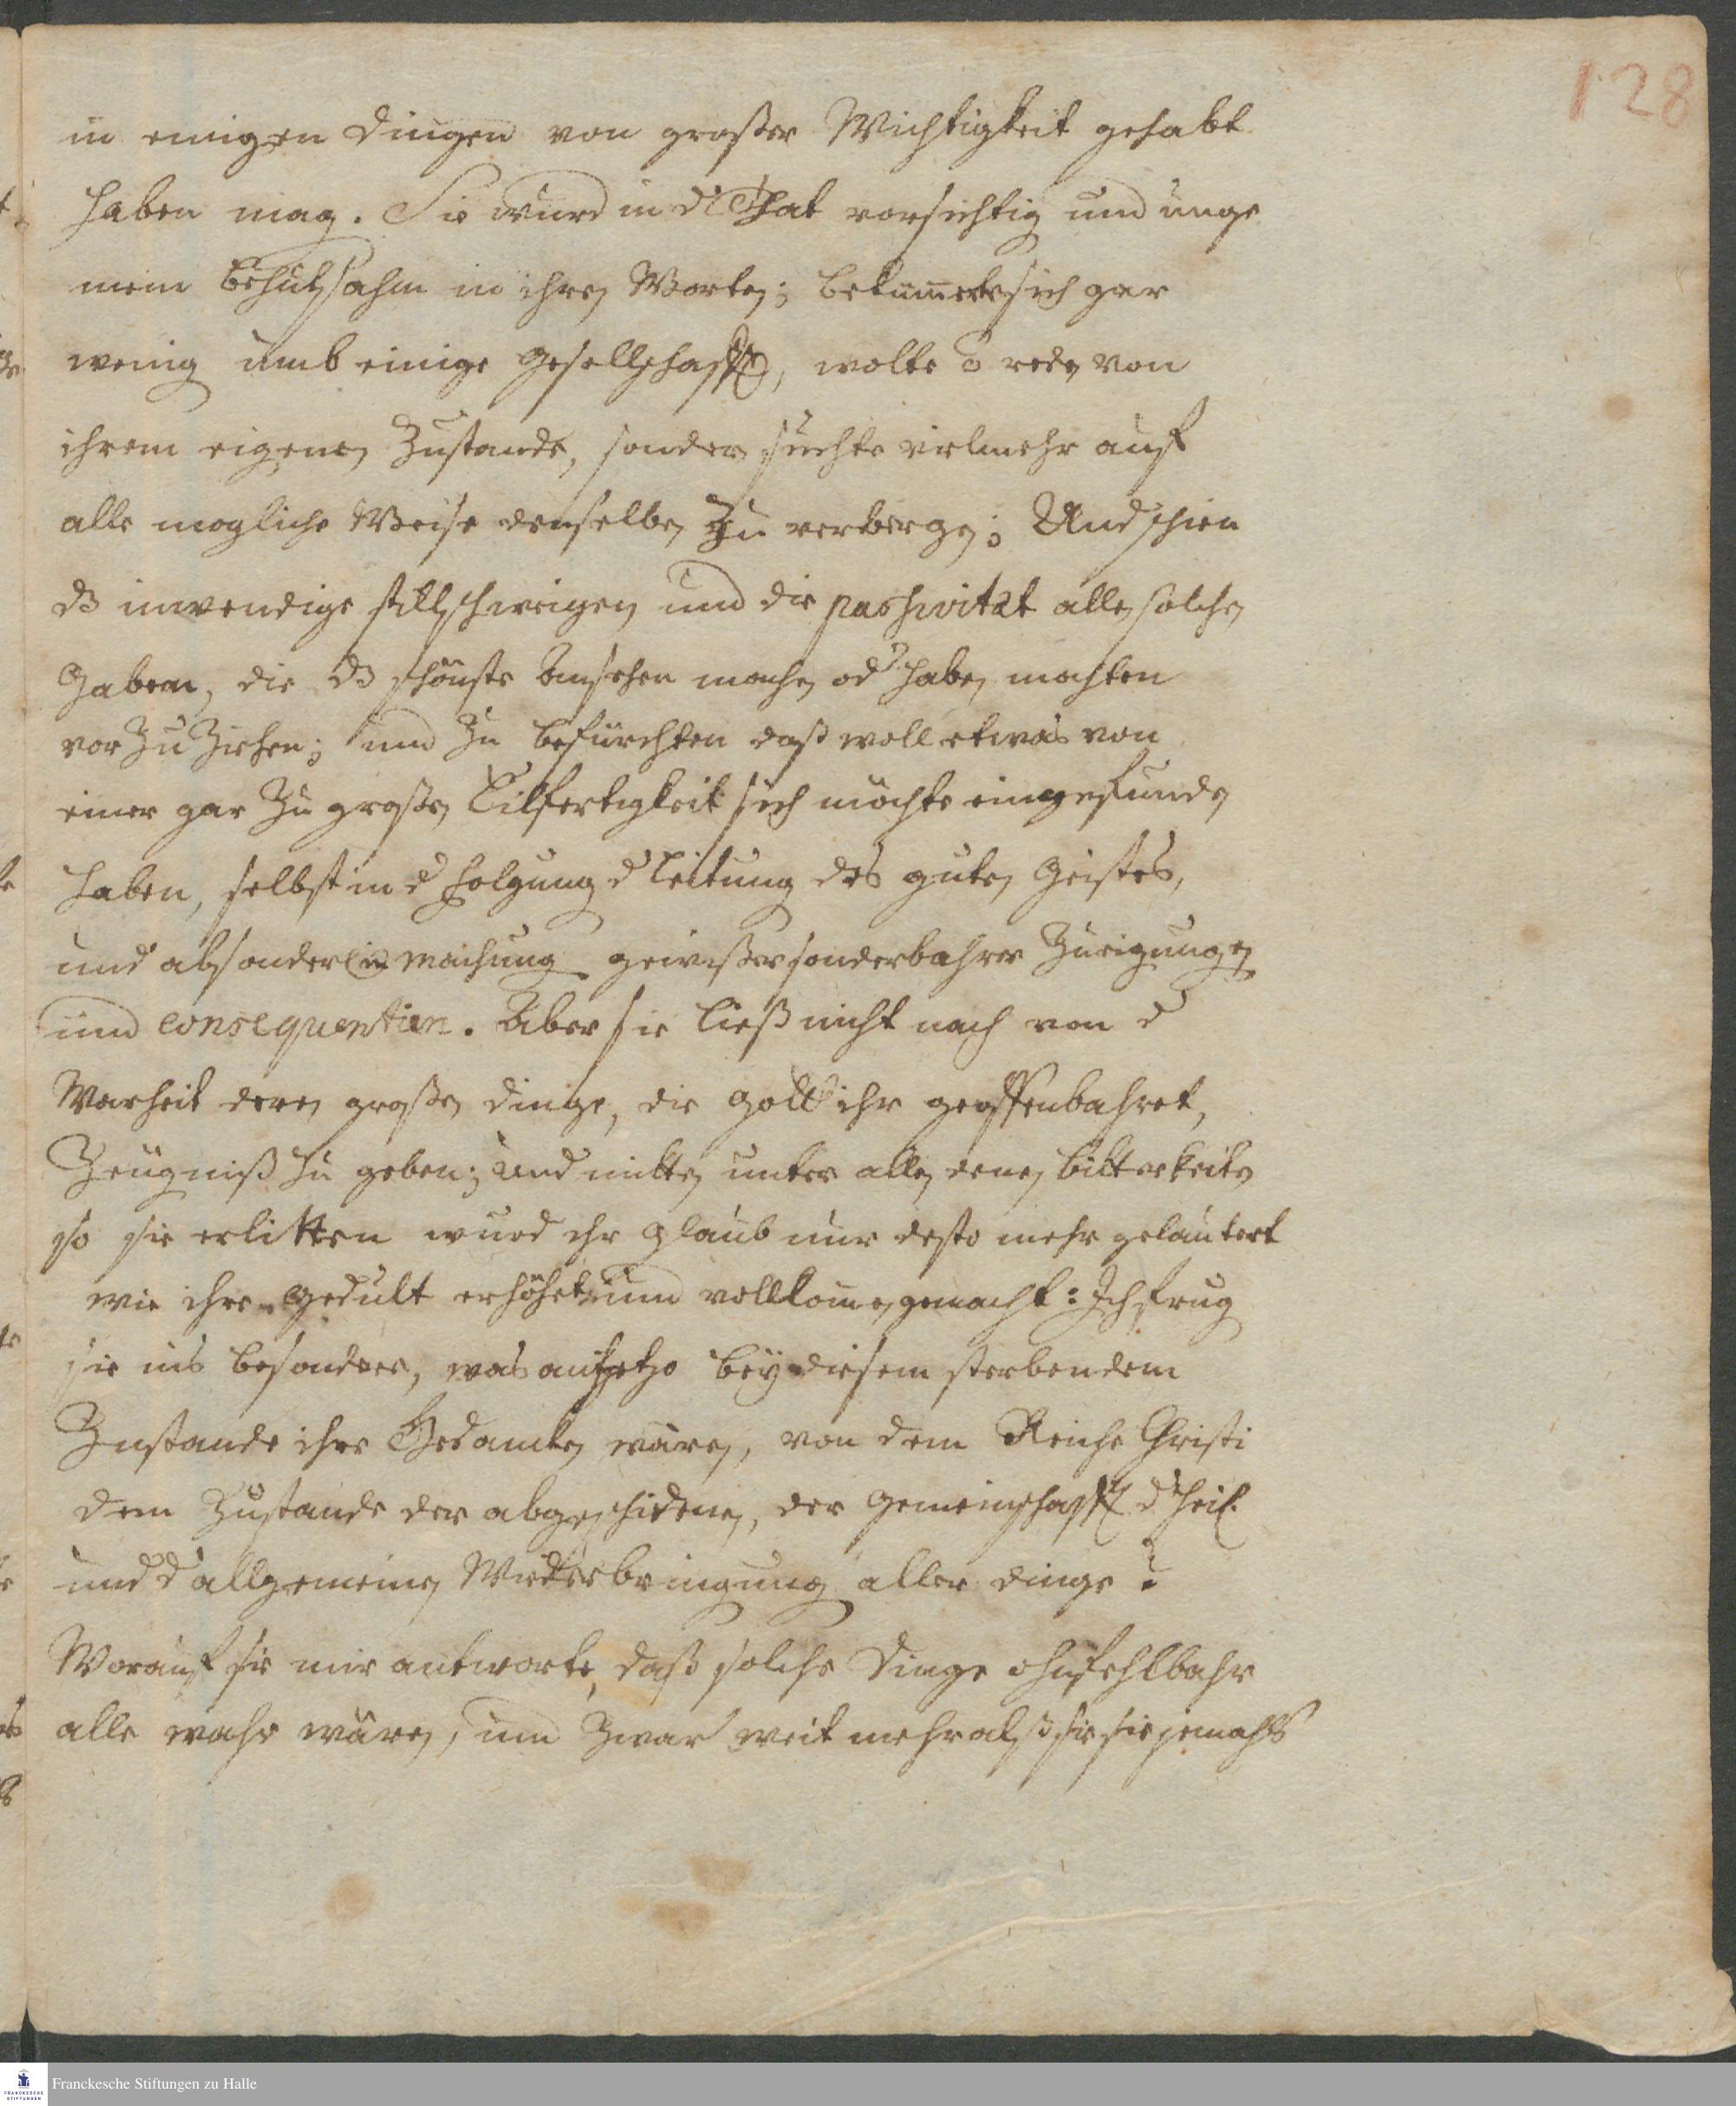 128
in einigen dingen von großer Wichtigkeit gehabt
haben mag. Sie wurd in d That vorsichtig und unge
mein behutsahm in ihren Worten; bekümerte sich gar
wenig umb einige Gesellschafft, wolte õ reden von
ihrem eigenen Zustande, sondern suchte vielmehr auf
alle mogliche Weise denselben zu verbergen; Und schien
dz inwendige stillschweigen und die passivität allen solchen
Gaben, die dz schönste Ansehen machen od haben mochten
vor zu ziehen; und zu befürchten daß woll etwas von
einer gar zu großen Eilfertigkeit sich möchte eingefunden
haben, selbst in d folgung d leitung des guten Geistes,
und absonderl in machung gewißer sonderbahrer Zueigungen
und consequentien. Aber sie ließ nicht nach von d
Warheit deren großen dinge, die Gott ihr geoffenbahret,
Zeugniß zu geben; und mitten unter allen denen bitterkeiten
so sie erlitten wurd ihr glaub nur desto mehr geläutert
wie ihre Gedult erhöhet und vollkomen gemacht: Ich frug
sie ins besondere, was anjetzo bey diesem sterbendem
Zustande ihre Gedancken wären, von dem Reiche Christi
dem Zustande der abgeschidenen, der Gemeinschafft d heil.
und d allgemeinen Wiederbringung aller dinge?
Worauf sie mir antworte, daß solche Dinge ohnfehlbahr
alle wahr wären, und zwar weit mehr alß sie sie jemahls
Franckesche Stiftungen zu Halle